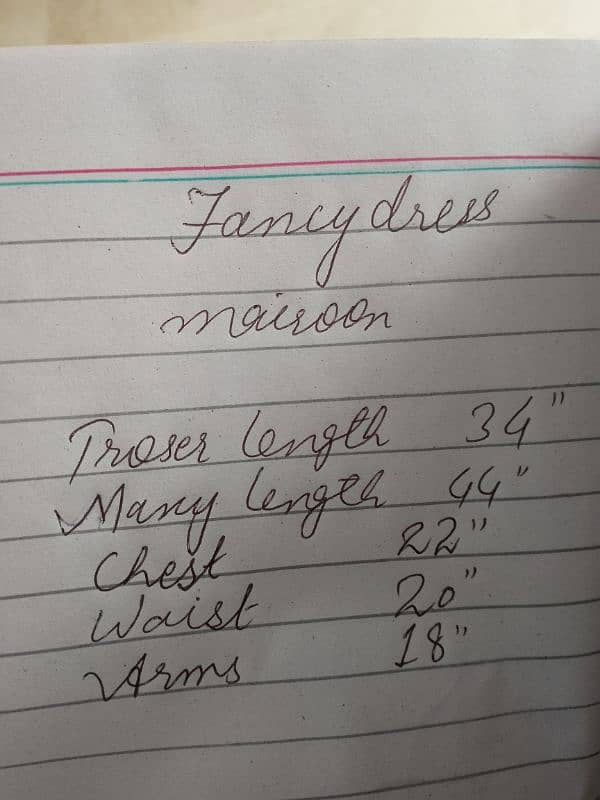 Fancy dress
mairoon
Troser length 34"
Maxy length 44"
Chest 22"
Waist 20"
Arms 18"